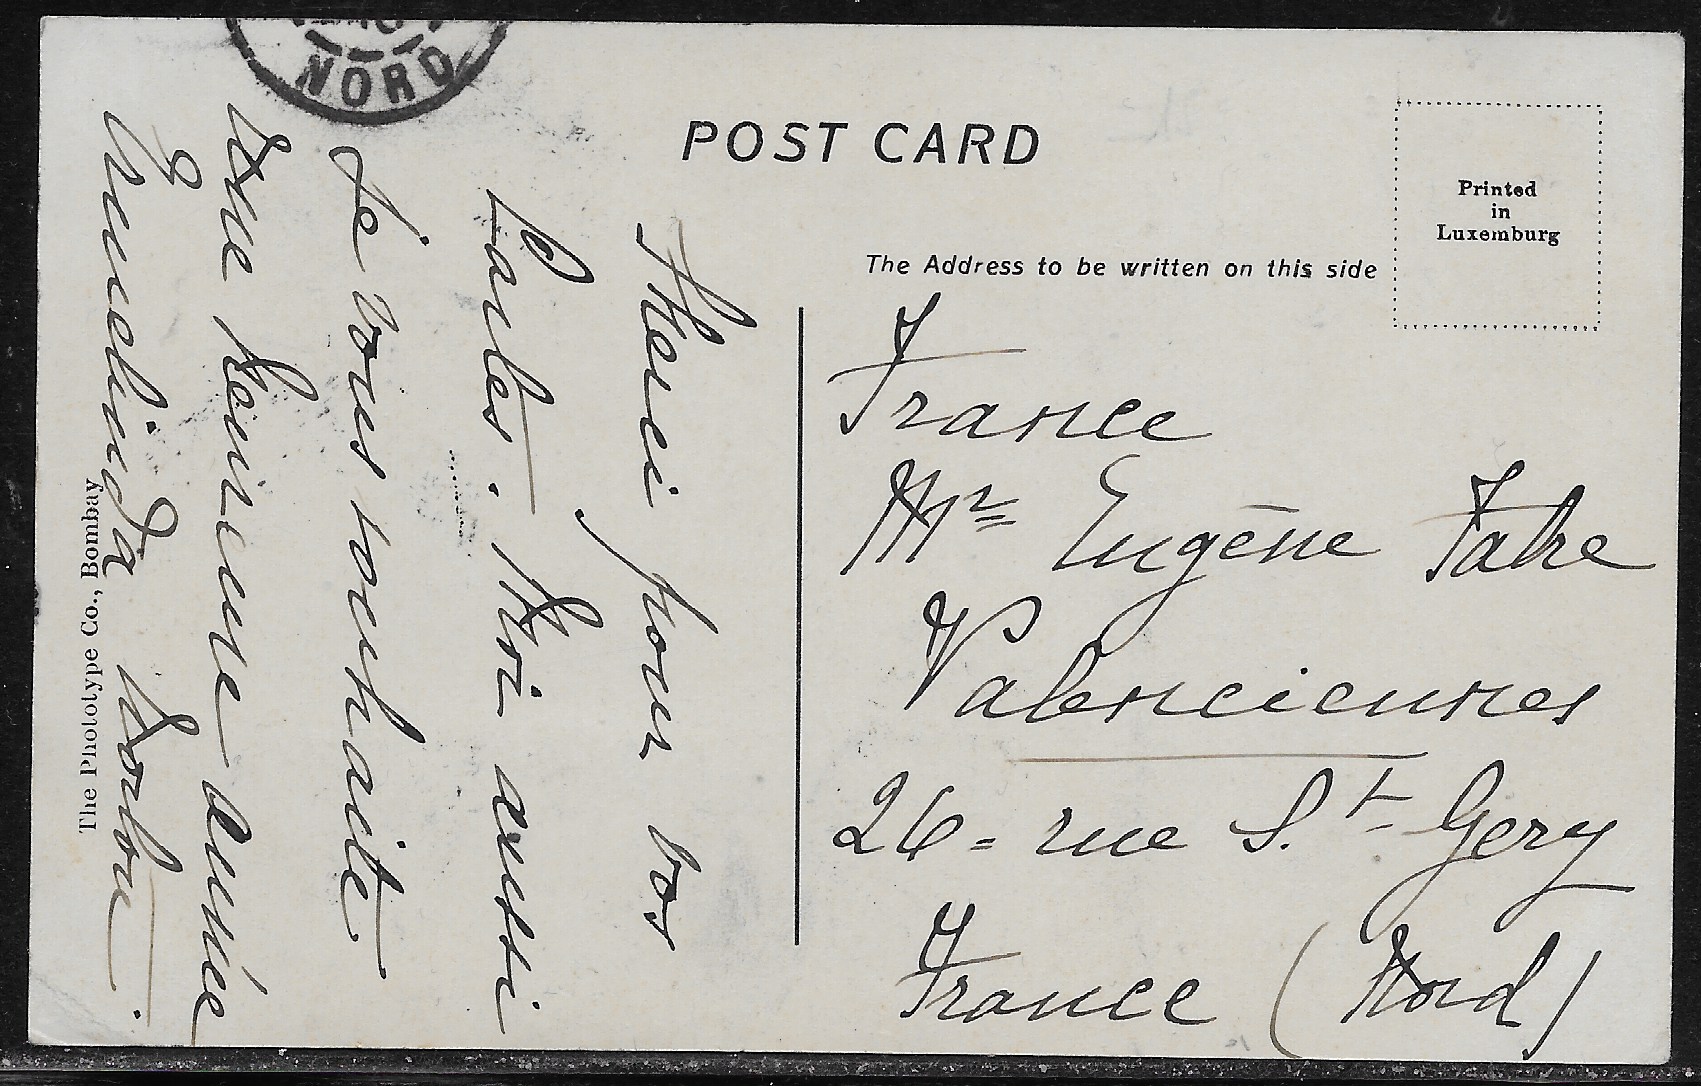 NORD
POST CARD
Printed
in
Luxemburg
The Address to be written on this side
France
Mr Eugène Fabre
Valenciennes
26 = rue St Gery
France (Nord)
Merci pour vos
Cartes. Moi aussi
Je vous souhaite
Une heureuse année
The Phototype Co., Bombay